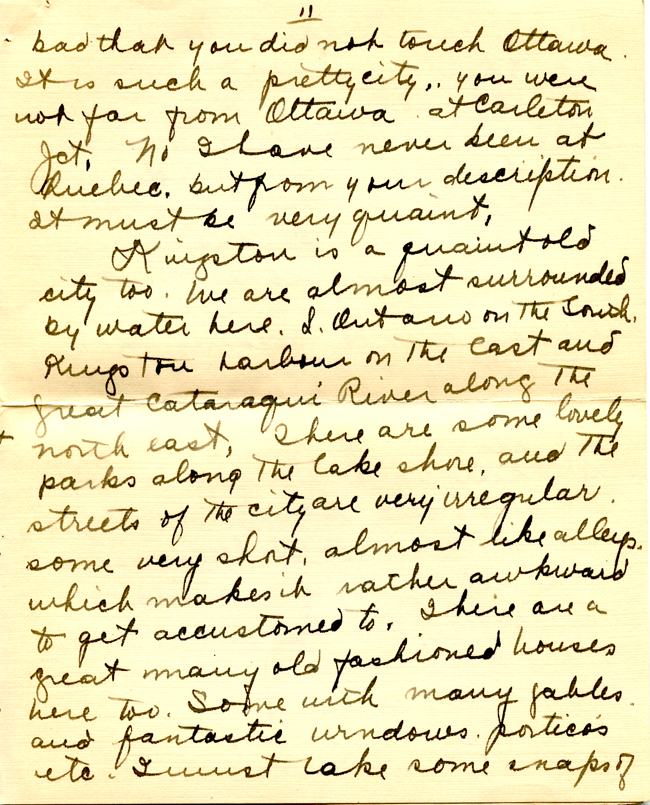 11
bad that you did not touch Ottawa.
It is such a pretty city,. you were
not far from Ottawa at Carleton
Jct. No I have never been at
Quebec. but from your description.
It must be very quaint.
Kingston is a quaint old
city too. We are almost surrounded
by water here. L. Ontario on the South.
Kingston harbour on the East and
great Cataraqui River along the
north east. There are some lovely
parks along the lake shore, and the
streets of the city are very irregular.
some very short, almost like alleys.
which makes it rather awkward
to get accustomed to. There are a
great many old fashioned houses
here too. Some with many gables.
and fantastic windows. porticos
etc. I must take some snaps of